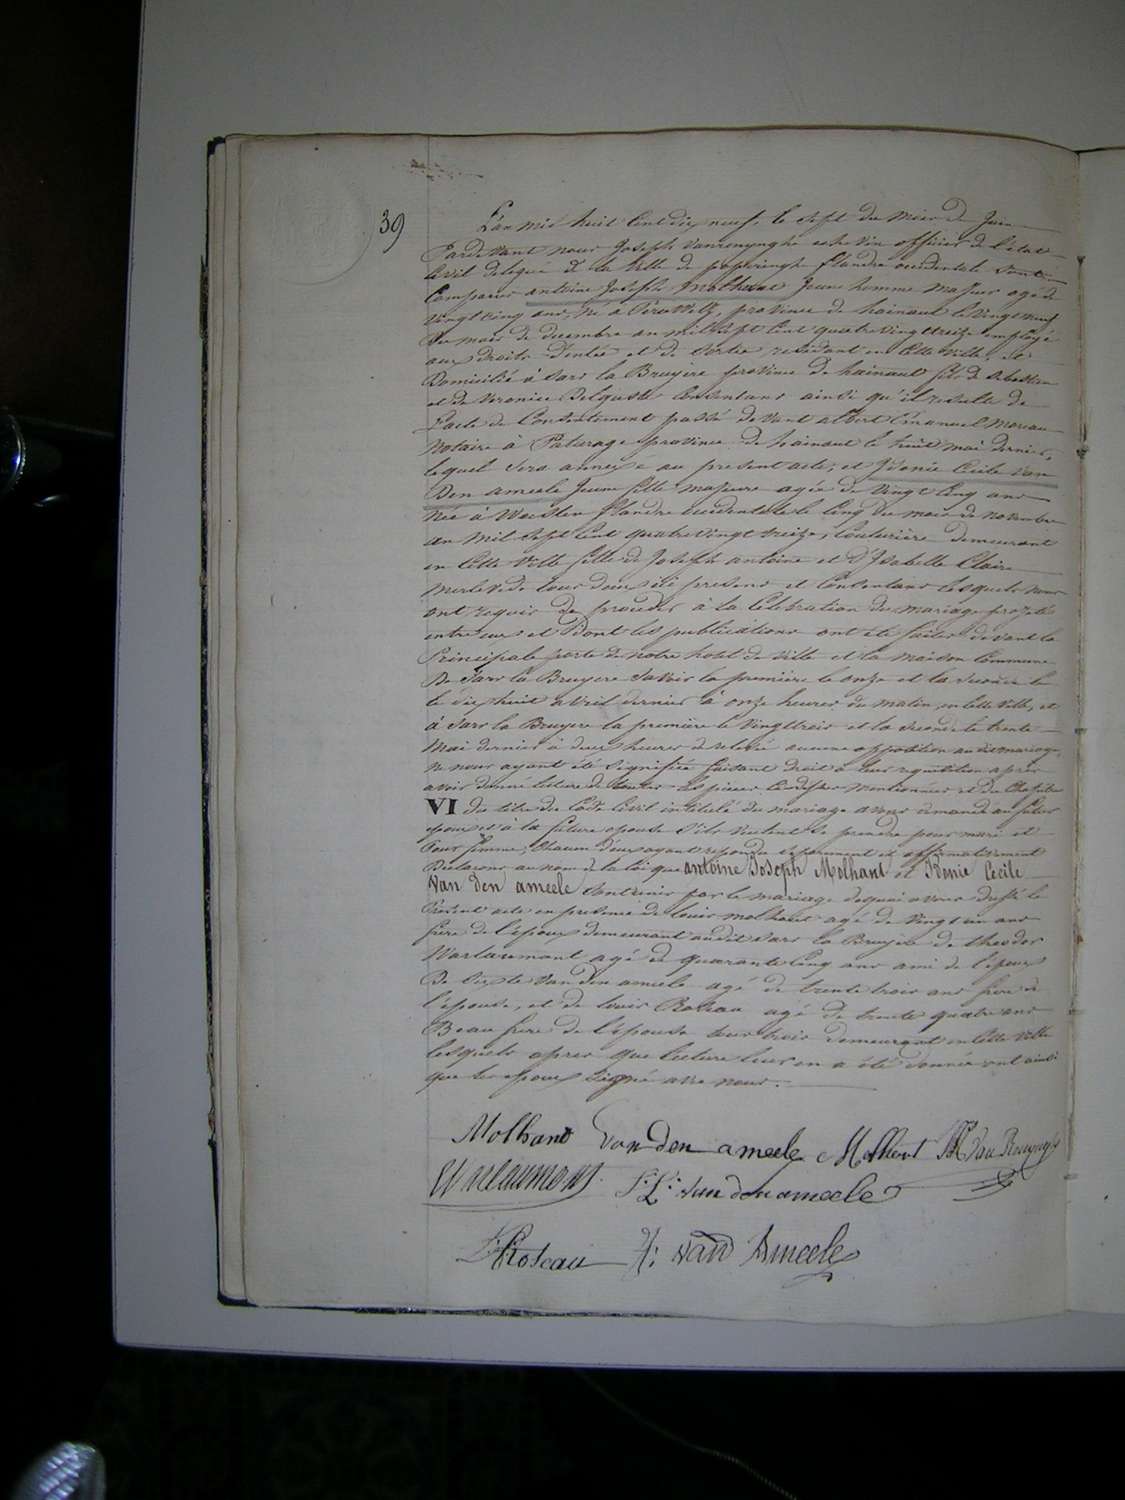 39
L'an mil huit Cent dix neuf, le Sept du mois de Juin
Pardevant nous Joseph Vanrenynghe echevin officier de l'état
Civil delegué de la Ville de poperinghe flandre occidentale sont
Comparus antoine Joseph Molhant Jeune homme majeur agé de
Vingt cinq ans, né à Peruwelz, province de hainaut le Vingt neuf
du mois de decembre an mil Sept Cent quatre vingt treize employé
aux droits d'entrée et de Sortie, residant en cette Ville, et
Domicilié à Sars la Bruyere province de hainaut fils de Sebastien
et de Veronice Consentans ainsi qu'il resulte de
l'acte de Consentement passé devant albert Emanuel Moreau
Notaire à Paturage province de hainaut le huit mai dernier,
lequel sera annexé au present acte, et Cecile van
Den ameele Jeune fille majeure agée de Vingt Cinq ans
Née à Woesten flandre occidentale le Cinq du mois de novembre
an mil Sept Cent quatre vingt treize, Couturière demeurant
en Cette Ville fille de Joseph antoine et d'Isabelle Claire
tous deux ici presens et Consentans lesquels nous
ont requis de proceder à la Celebration du mariage projetté
entre eux et dont les publications ont été faites devant la
Principale porte de notre hotel de Ville et la maison Commune
De Sars la Bruyere Savoir la première le onze et la Seconde le
le dix huit avril dernier à onze heures du matin, en Cette Ville, et
à Sars la Bruyere la première le Vingt trois et la Seconde le trente
Mai dernier à deux heures de relevée aucune opposition au dit mariage
ne nous ayant été Signifiée faisant droit à leur requisition apres
avoir donné lecture de toutes les pieces Cidessus mentionnées et du Chapitre
VI du titre du Code Civil intitulé du mariage avons demandé au futur
epoux et à la future epouse S'ils veulent Se prendre pour mari et
Pour femme, Chacun d'eux ayant repondu Separement et affirmativement
Declarons au nom de la loi que antoine Joseph Molhant et Cecile
Van den ameele Sont unis par le mariage de quoi avons dressé le
Present acte en presence de louis molhant agé de Vingt un ans
frère de l'epoux demeurant audit Sars la Bruyère de theodor
Warlaumont agé de quarante Cinq ans ami de l'epoux
De Van den ameele agé de trente trois ans frere de
l'epouse, et de louis Roseau agé de trente quatre ans
Beau frere de l'epouse tous trois demeurant en Cette Ville
lesquels apres que lecture leur en a été donnée ont ainsi
que les epoux Signé avec nous.
Molhant Van den ameele Molhant Van Renynghe
Warlaumont van den ameele
L. Roseau J: van Ameele